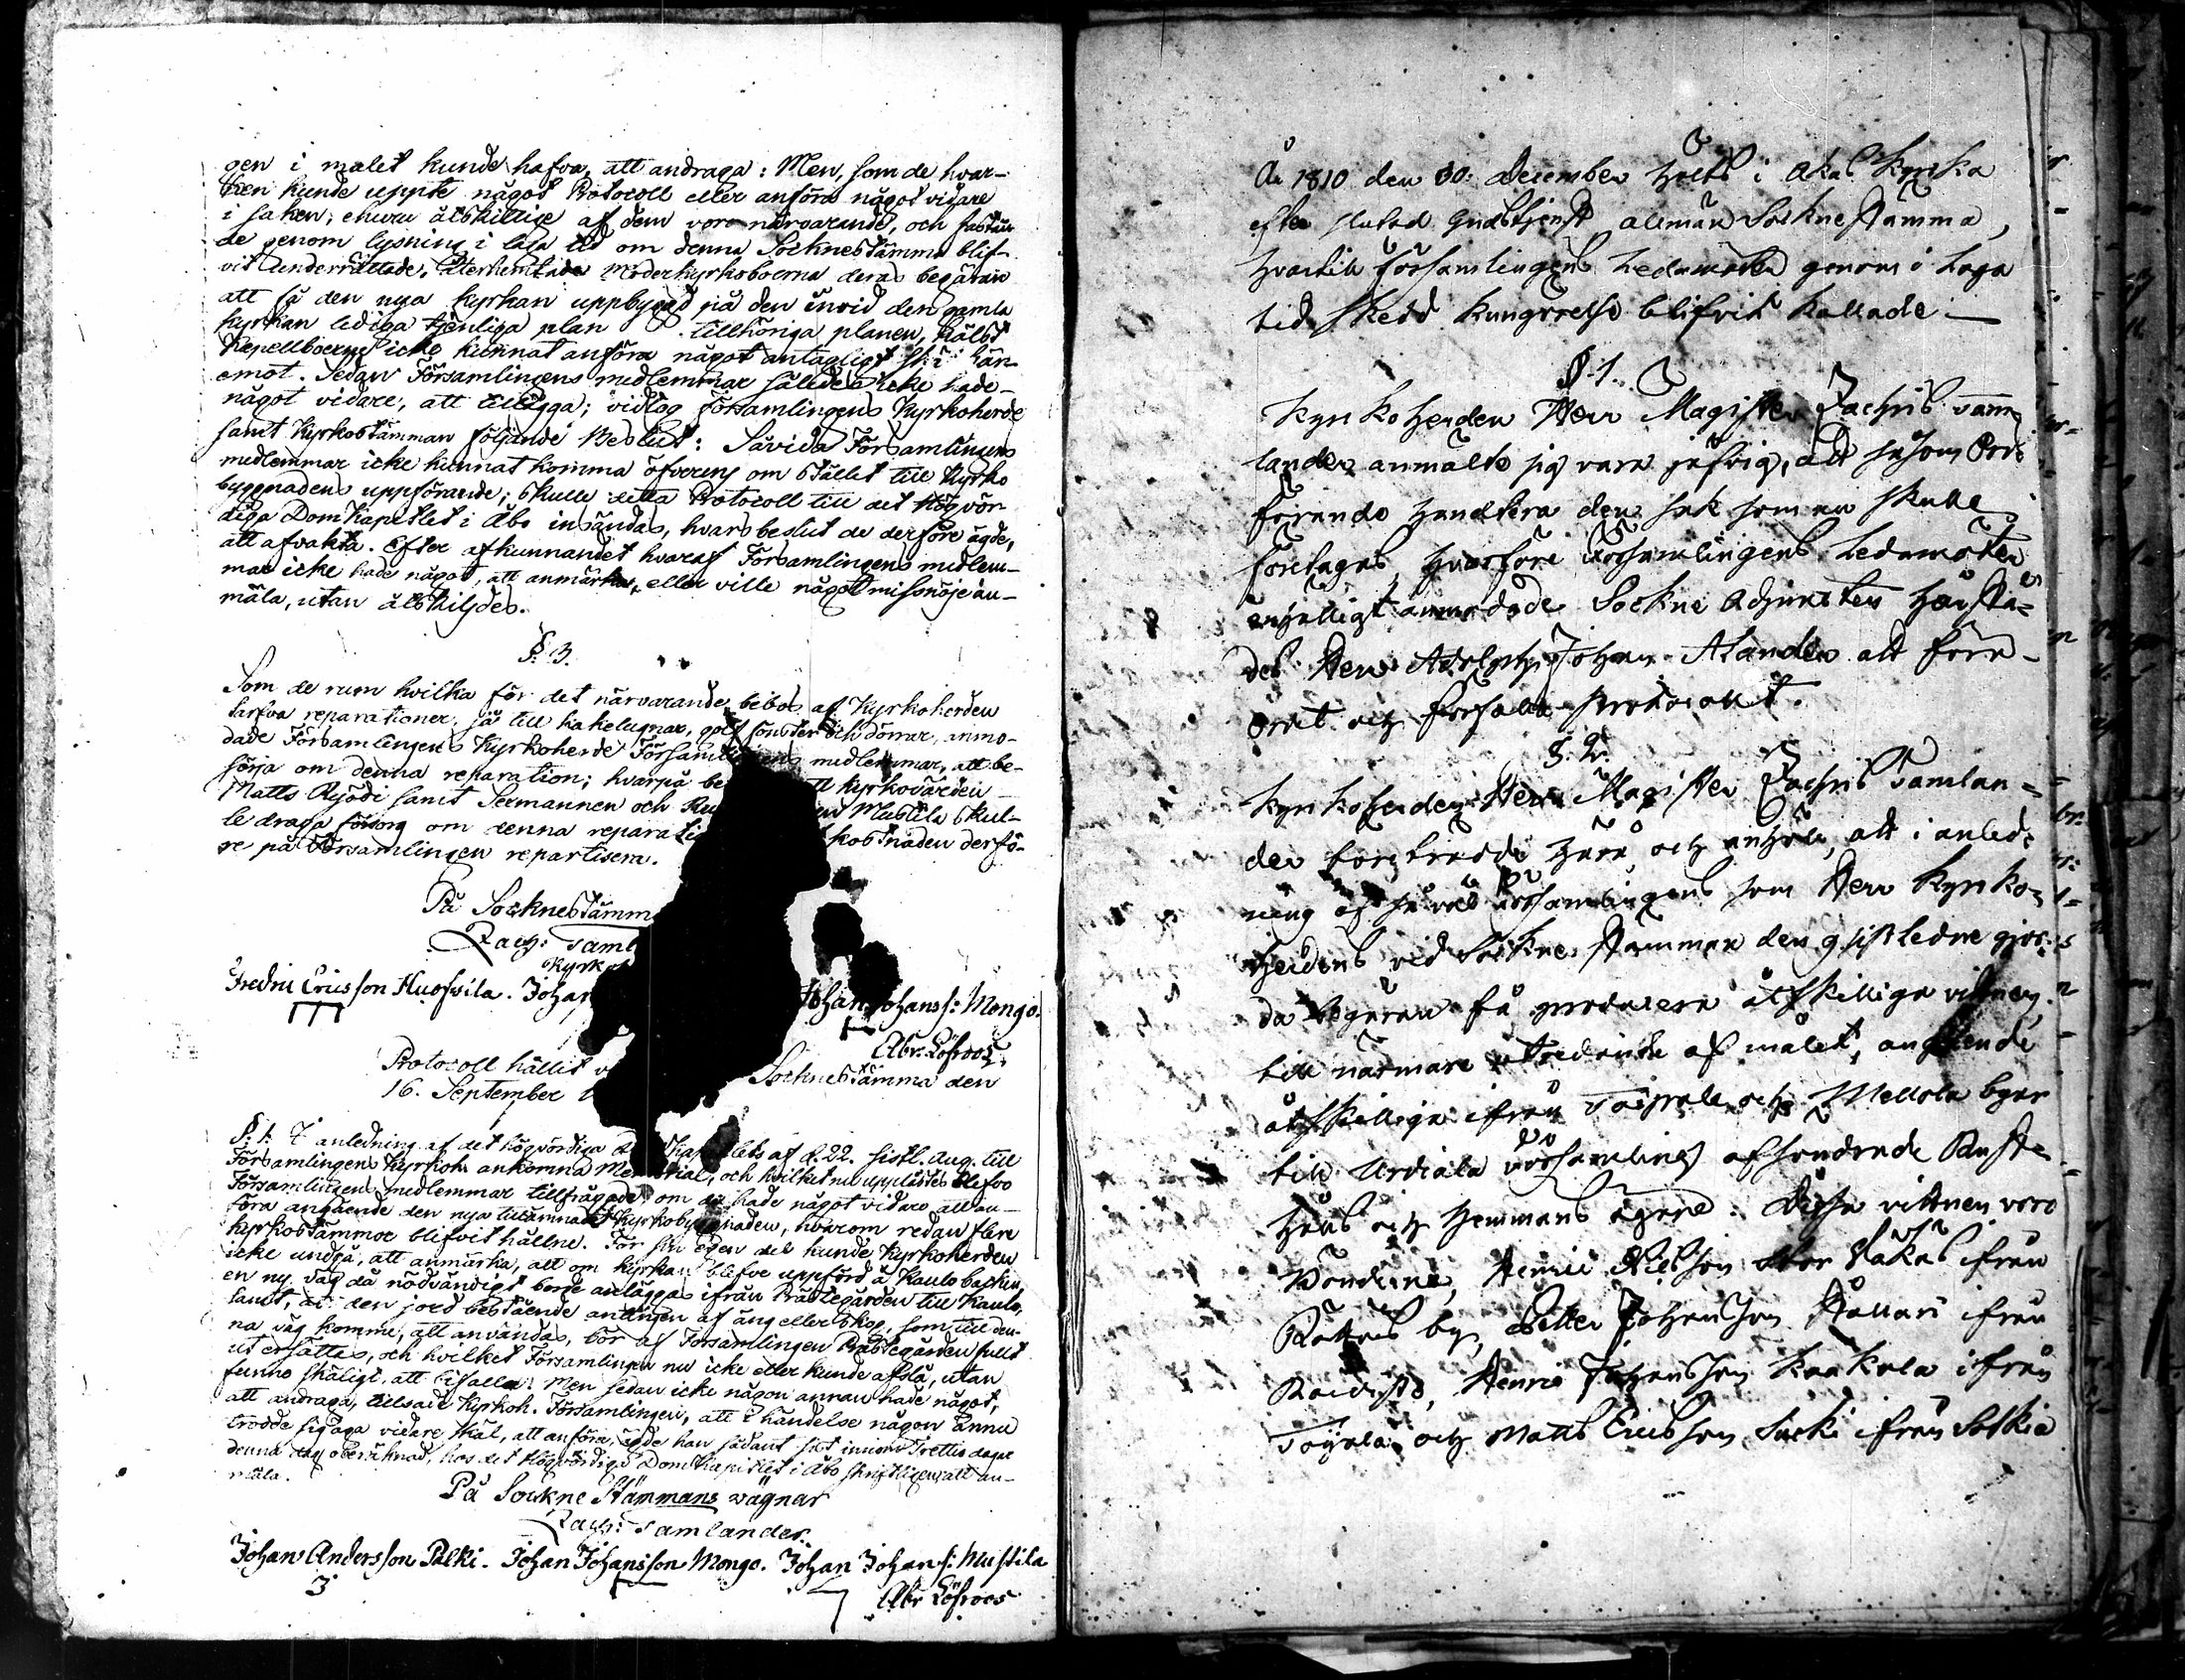 gen i målet kunde hafva, att andraga: Men, som de hvar-
ken kunde uppte något Protocoll eller anföra något vidare
i saken, ehuru åtskillige af dem voro närvarande, och
de genom lysning i laga tid om denna Socknestämma blif-
vit underrättade; återhemtade Moderkyrkoboerna deras begäran
att få den nya kyrkan uppbygd på den invid den gamla
kyrkan lediga tjenliga plan tillhöriga planen, hälst
Kapellboerne icke kunnat anföra något antagligt skäl här-
emot. Sedan Församlingens medlemmar således icke hade
något vidare, att tillägga; vidtog Församlingens Kyrkoherde
samt Kyrkostämman följande Beslut: Såvida Församlingens
medlemmar icke kunnat komma öfverens om stället till Kyrko
byggnadens uppförande; skulle detta Protocoll till det Högvör
diga DomKapitlet i Åbo insändas, hvars beslut de derföre ägde,
att afvakta. Efter afkunnandet hvaraf Församlingens medlem-
mar icke hade något, att anmärka, eller ville något missnöje an-
mäla, utan åtskiljdes.
§. 3.
Som de rum hvilka för det närvarande bebos af Kyrkoherden
tarfva reparationer, så till kakelugnar, golf fönster och dörrar, anmo-
dade Församlingens Kyrkoherde Församlingens medlemmar, att be-
sörja om denna reparation; hvarpå be tt Kyrkovärden
Matts Äijödi samt Sexmannen och en Mustila skul-
le draga försorg om denna reparati kostnaden derfö-
re på Församlingen repartisera.
På Socknestämm
Zach: Saml
Kyrko
Fredric Ericsson Huofwila. Johan Johan Johanss: Mongo.
Abr. Löfroos
Protocoll hållit v Socknestämma den
16. September 1
§. 1. I anledning af det högvördiga DomKapitlets af d. 22. sistl. Aug. till
Församlingens Kyrkoh. ankomna Memorial, och hvilket nu upplästes blefvo
Församlingens medlemmar tillfrågade, om de hade något vidare att an-
föra angående den nya tillämnade Kyrkobyggnaden, hvarom redan flere
Kyrkostämmor blifvit hållne. För sin egen del kunde Kyrkoherden
icke undgå, att anmärka, att om kyrkan blefve uppförd å Kaulo backen,
en ny väg då nödvändigt borde anläggas ifrån Prästegården till Kaulo,
samt, att den jord bestående antingen af äng eller skog, som till den-
na väg komme, att användas, bör af Församlingen Prästegården fullt
ut ersättas, och hvilket Församlingen nu icke eller kunde afslå, utan
funno skäligt, att bifalla: Men sedan icke någon annan hade något,
att andraga, tillsade Kyrkoh. Församlingen, att i händelse någon ännu
trodde sig äga vidare skäl, att anföra, ägde han sådant sist innom Trettio dagar
denna dag oberäknad, hos det Högvördiga DomKapitlet i Åbo skriftligen att an-
mäla.
På Sockne Stämmans vägnar
Zach: Samlander.
Johan Andersson Pälki. Johan Johansson Mongo. Johan Johans s: Mustila
Abr Löfroos
År 1810 den 30. December hölts i Akas Kyrka
efter slutad Gudstjenst allmän Sockne Stämma,
hvartill Församlingens Ledamöter genom i Laga
tid skedd kungörelse blifvit kallade.
§. 1.
Kyrkoherden Herr Magister Zachris Sam
lander anmälte sig vara jäfvig, att såsom Ord
förande handtera den sak som nu skulle
företagas, hvarföre Församlingens Ledamöter
enhälligt anmodade Sockne Adjuncten härstä-
des Herr Adolph Johan Alander att föra
ordet och författa Protocollet.
§. 2.
Kyrkoherden Herr Magister Zachris Samlan=
der och anhöll, att i anled=
ning af så väl Församlingens som Herr Kyrko=
herdens vid Sockne Stämman den 9 sistledne gjor=
da begäran få producera åtskilliga vittnen
till närmare utredande af målet, angående
åtskilliga ifrån Toijala och Mellola byar
till Urdiala Församling afsöndrade Rust
håls och Hemmans ägare. Dessa vittnen voro
Henric ifrån
by, Petter Johansson Stallari ifrån
Henric Johansson Kaakola ifrån
Toijala och Matts Ericsson ifrån Sotkia